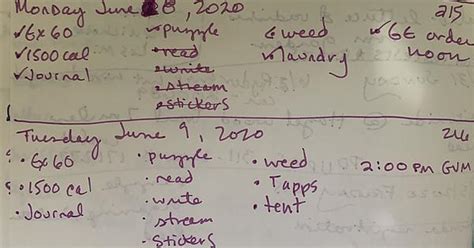 Monday June 8, 2020 215
✓Ex 60 ✓puzzle ✓weed ✓GE order
✓1500 cal •read ✓laundry noon
✓Journal •write
•stream
•stickers
Tuesday June 9, 2020
• Ex 60 • puzzle • weed 2:00 PM GVM
• 1500 cal • read • Tapps
• Journal • write • tent
stream
• stickers